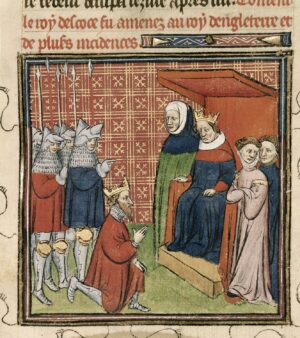 apres lui. Coment
le roy descoce fu amenez au roy dengleterre et
de plus incidences